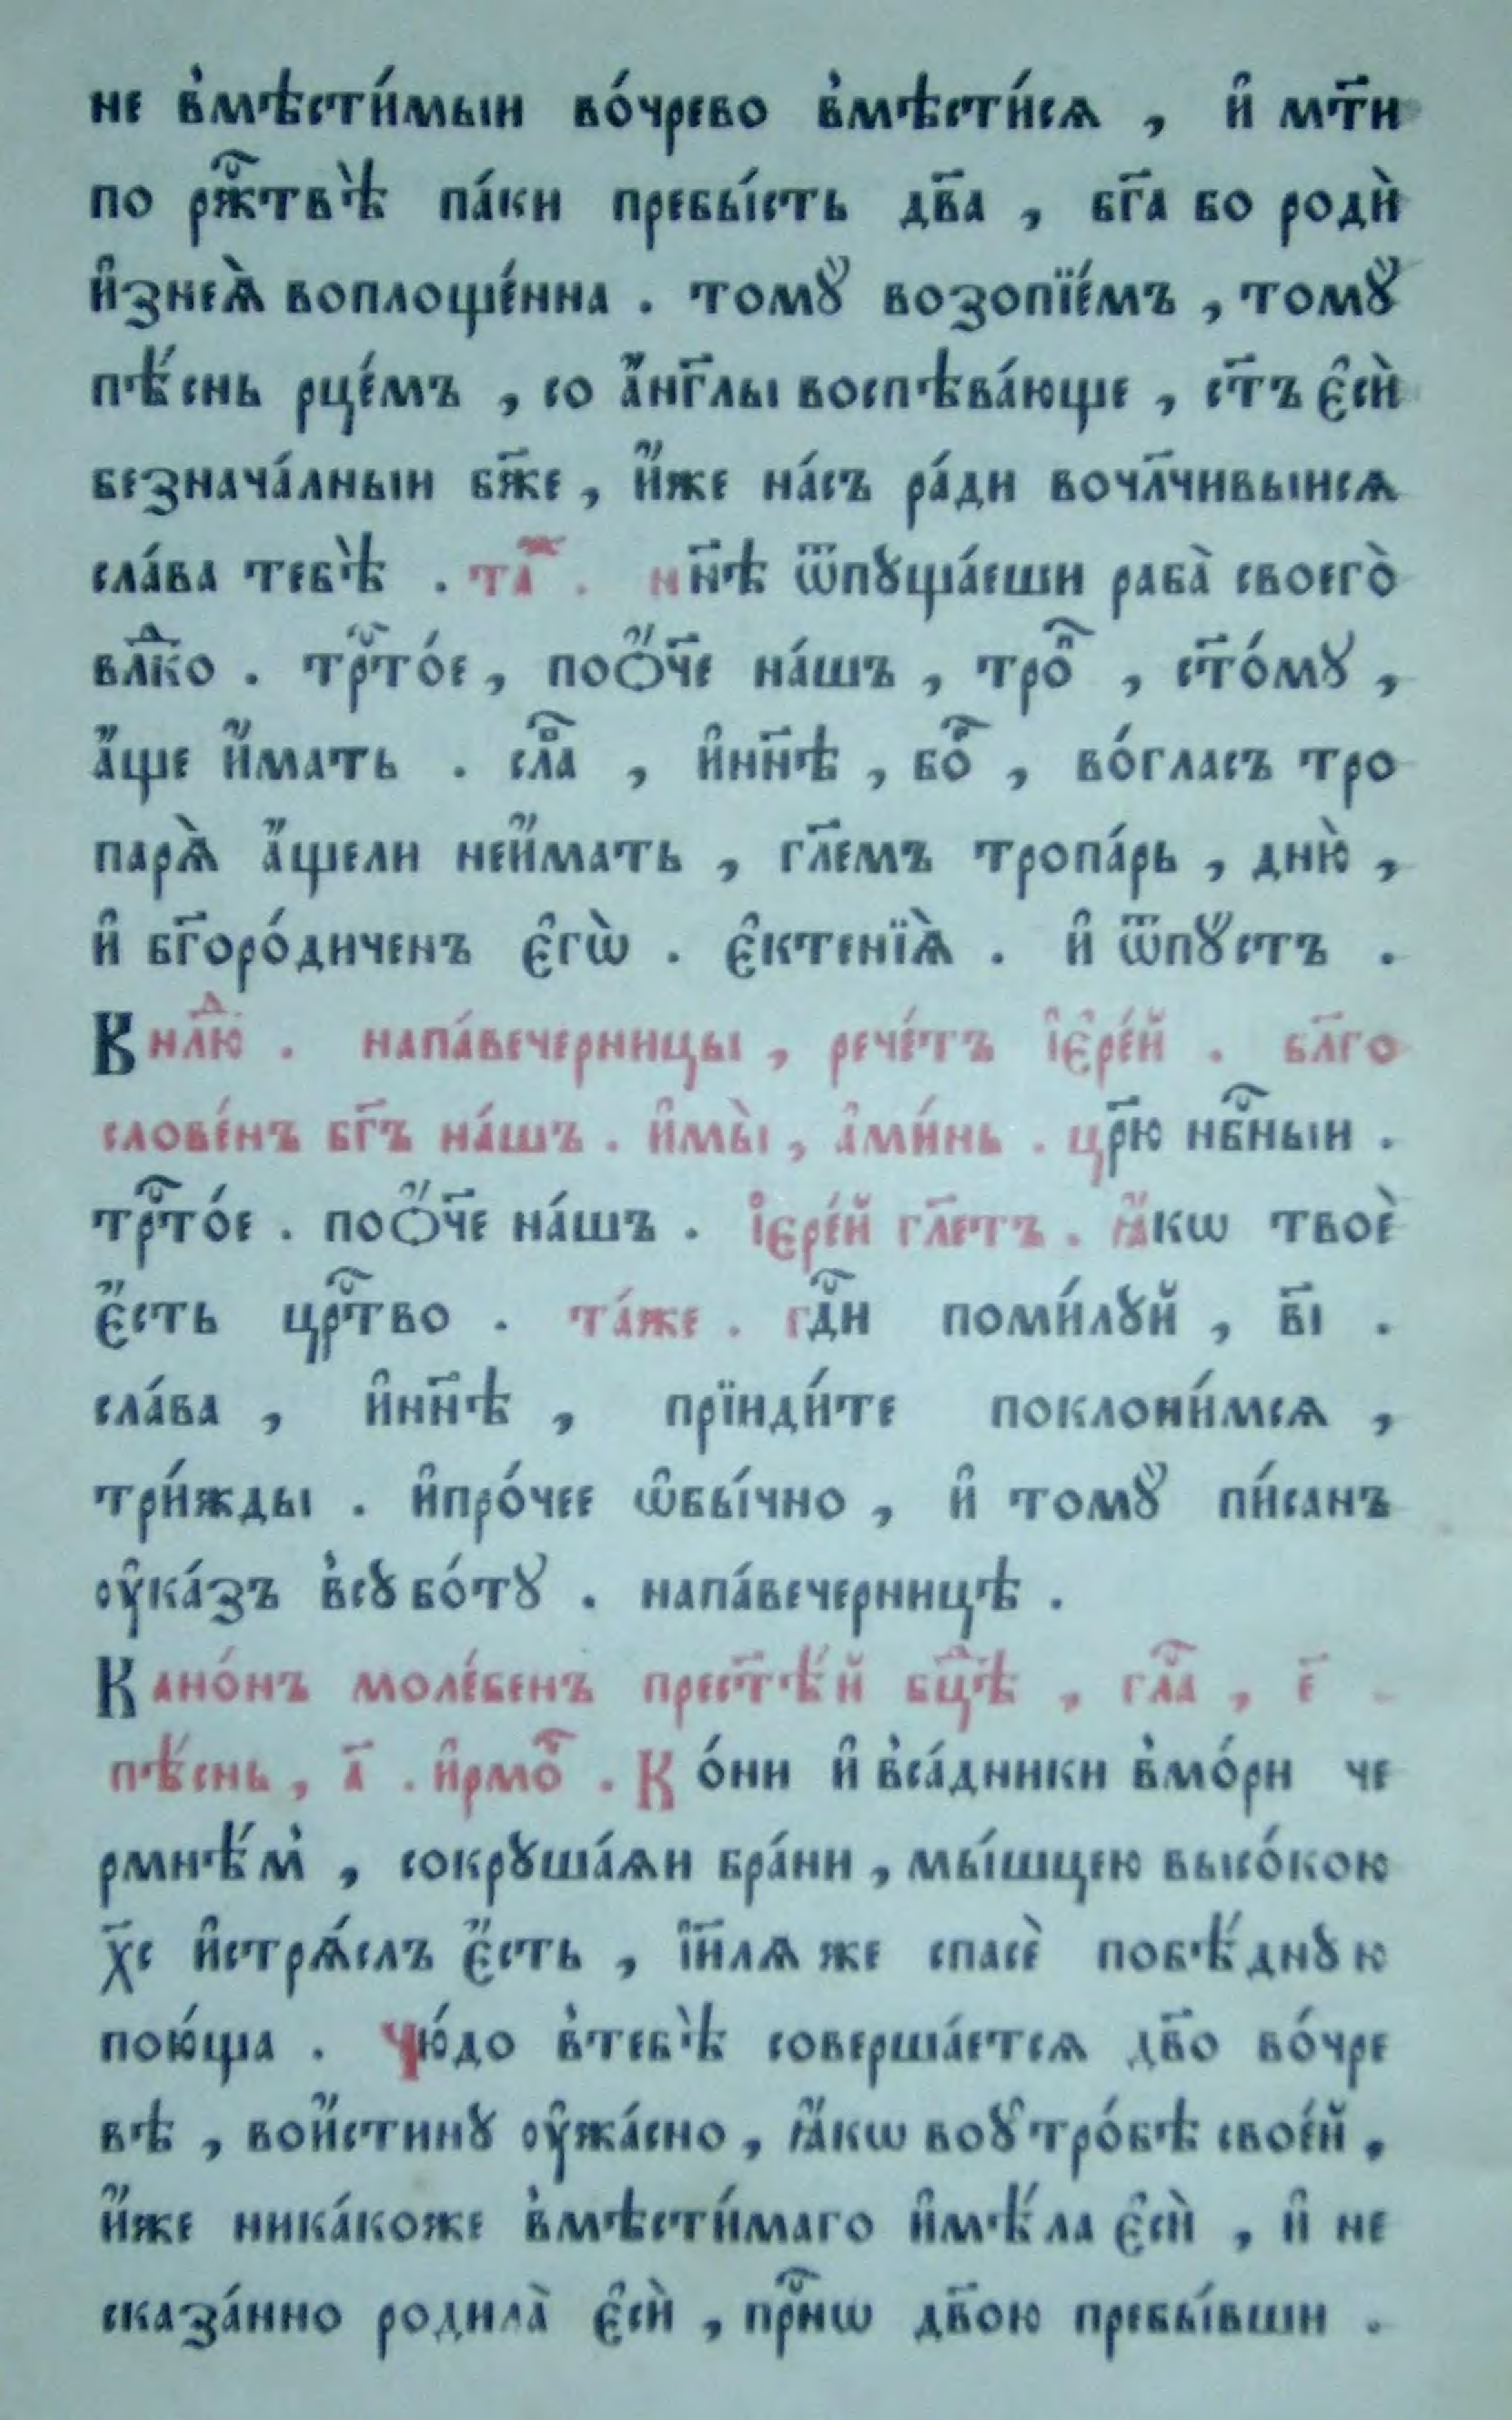 не в̾мѣсти́мыи во́чрево в̾мѣсти́сѧ , и҆ мт҃и
по рж҇твѣ̀ па́ки пребы́сть дв҃а , бг҃а бо роди̏
и҆знеѧ̀ воплоще́нна . томꙋ̀ возопїе́мъ , томꙋ̀
пѣ́снь рце́мъ , со а҆́нг҃лы воспѣва́юще , ст҃ъ є҆сѝ
безнача́лныи бж҃е , и҆́же на́съ ра́ди вочл҃чивыисѧ
сла́ва тебѣ̀ . таⷤ . нн҃ѣ ѿпꙋща́еши раба̀ своего̀
влⷣко . тр҇то́е , поѻ҆́ч҃е на́шъ , троⷫ҇ , ст҃о́мꙋ ,
а҆́ще и҆́мать . слаⷡ҇ , и҆нн҃ѣ , боⷢ҇ , во́гласъ тро
парѧ̀ а҆́щели неи҆́мать , гл҃емъ тропа́рь , дню̀ ,
и҆ бг҃оро́диченъ є҆гѡ̀ . є҆ктенїѧ̀ . и҆ ѿпꙋ́стъ .
В нлⷣю . напа́вечерницы , рече́тъ і҆є҆ре́й . бл҃го
слове́нъ бг҃ъ на́шъ . и҆мы̀ , а҆ми́нь . цр҃ю нб҇ныи .
тр҇то́е . поѻ҆́ч҃е на́шъ . і҆єре́й гл҃етъ . ꙗ҆́кѡ твоѐ
є҆́сть цр҇тво . та́же . гдⷭ҇и поми́лꙋй , в҃і .
сла́ва , и҆нн҃ѣ , прїиди́те поклони́мсѧ ,
три́жды . и҆про́чее ѡ҆бы́чно , и҆ томꙋ̀ пи́санъ
ᲂу҆ка́зъ в̾сꙋбо́тꙋ . напа́вечерницѣ .
Кано́нъ моле́бенъ прест҃ѣ́й бцⷣѣ , глаⷭ҇ , є҃ .
пѣ́снь , а҃ . и҆рмоⷭ҇ . Ко́ни и҆ в̾са́дники в̾мо́ри че
рмнѣ́м̾ , сокрꙋша́ѧи бра́ни , мы́шцею высо́кою
хс҃ и҆стрѧ́слъ є҆́сть , і҆и҃лѧ же спасѐ побѣ́дную
пою́ща . Чю́до в̾тебѣ̀ соверша́етсѧ дв҃о во́чре
вѣ , вои҆́стинꙋ ᲂу҆жа́сно , ꙗ҆́кѡ воꙋтро́бѣ свое́й ,
и҆́же ника́коже в̾мѣсти́маго и҆мѣ́ла є҆сѝ , и҆ не
сказа́нно родила̀ є҆сѝ , прⷭ҇нѡ дв҃ою пребы́вши .